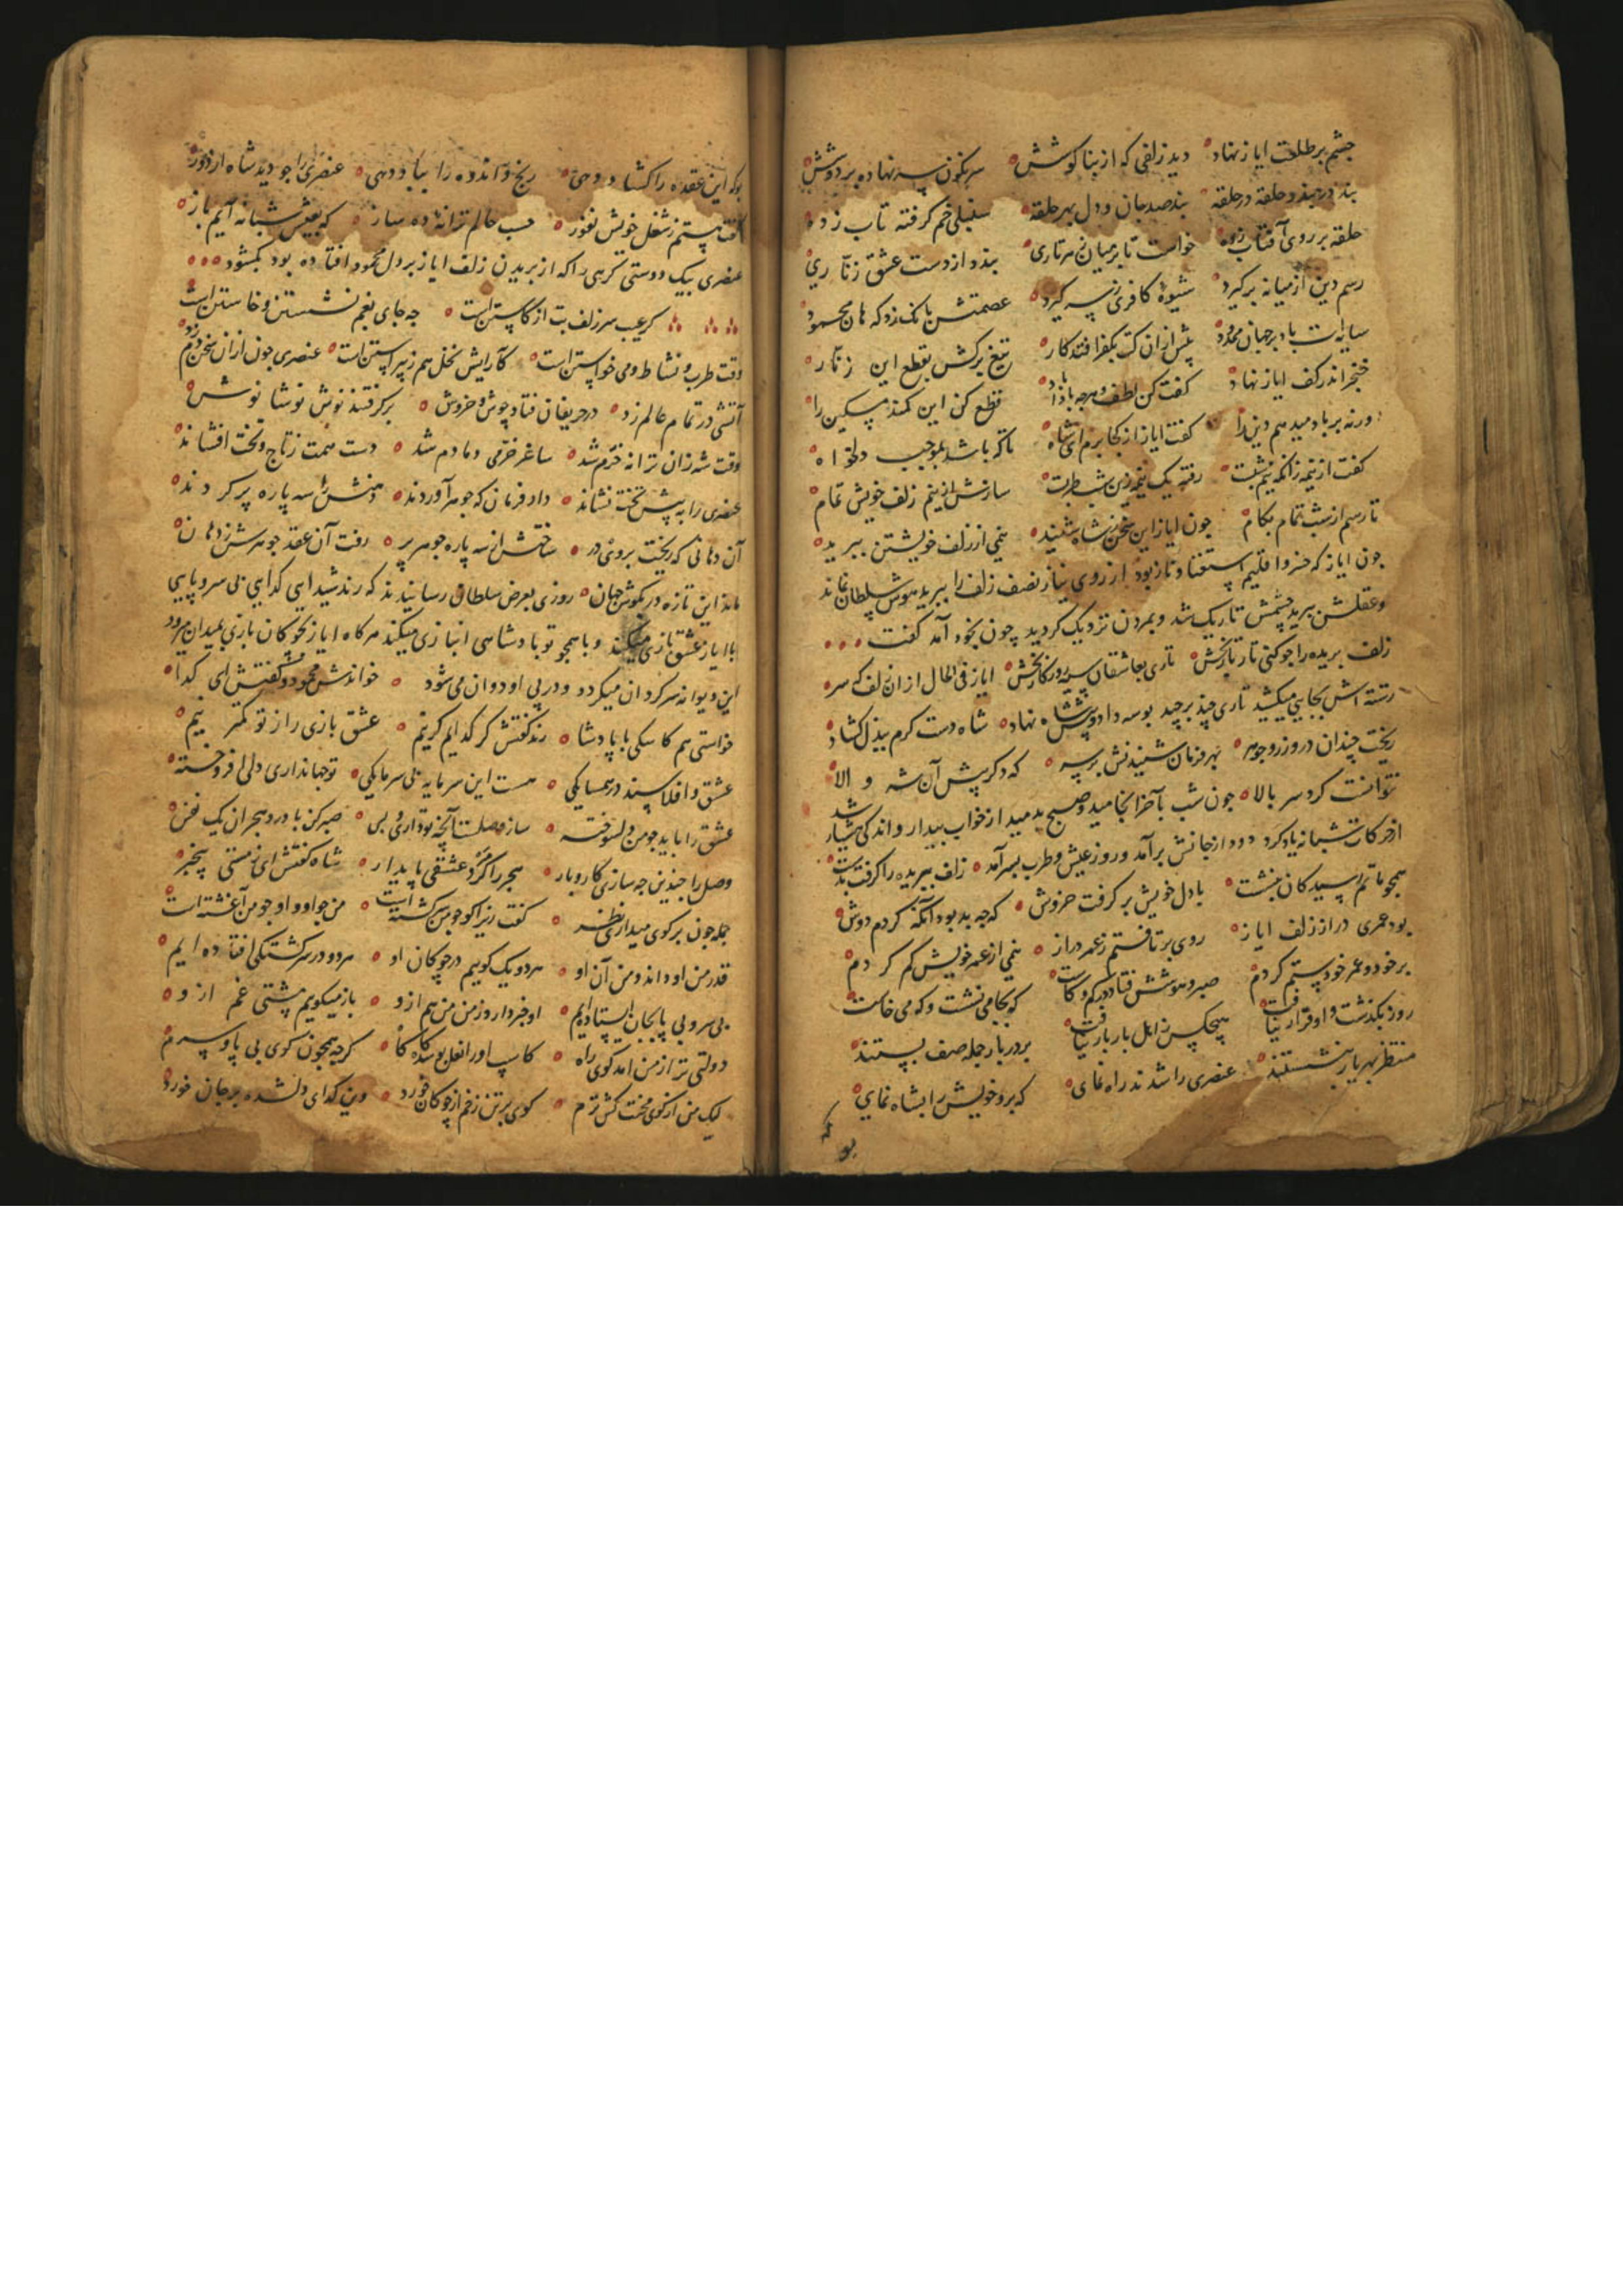 چشم بر طلعت ایاز نهاد ° دید زلفی که از بنا کوشش ° سرنکون سر نهاده بر دوشش
بند در بند و حلقه در حلقه ° بند صد جان و دل بهر حلقه ° سنبلی خم کرفته تاب زده
حلقه بر روی آفتاب زده ° خواست تا بر میان هر تاری ° بندد از دست عشق زنّاری
رسم دین از میانه بر کیرد ° شیوهٔ کافری ز سر کیرد ° عصمتش بانک زد که هان محمود
سایه‌ات باد بر جهان ممدود ° پیش ازان کت بکفر افتد کار ° تیغ برکش بقطع این زنّار
خنجر اندر کف ایاز نهاد ° کفت کن لطف و هرچه بادا باد ° قطع کن این کمند مسکین را
ورنه بر باد میدهم دین را ° کفت ایاز از کجا برم ای شاه ° تا که باشد بموجب دلخواه
کفت از نیمه زانکه نیم شبست ° رفته یک نیمه زین شب طربست ° سازش از نیم زلف خویش تمام
تا رسم از شب تمام بکام ° چون ایاز این سخن ز شاه شنید ° نیمی از زلف خویشتن ببرید
چون ایاز که خسرو اقلیم استغنا و ناز بود از روی نیاز نصف زلف را ببرید هوش سلطان نماند
و عقلش ببرید چشمش تاریک شد و بمردن نزدیک کردید چون بخود آمد کفت
زلف بریده را چو کنی تار تار بخش ° تاری بعاشقان سیه روزکار بخش ° ایاز فی الحال ازان زلف که سر
رشته اش بجایی میکشید تاری چند برچید بوسه داد و پیش شاه نهاد ° شاه دست کرم ببذل کشاد
ریخت چندان در و زر و جوهر ° بهر فرمان شنیدنش بر سر ° که دکر پیش آن شه والا
نتوانست کرد سر بالا ° چون شب بآخر انجامید و صبح بدمید از خواب بیدار و اندکی هشیار شد
از حرکات شبانه یاد کرد دود از جانش برآمد و روز عیش و طرب بسر آمد ° زلف ببریده را کرفت بدست
همچو ماتم رسیدکان بنشست ° با دل خویش بر کرفت خروش ° که چه بد بود آنکه کردم دوش
بود عمری دراز زلف ایاز ° روی بر تافتم ز عمر دراز ° نیمی از عمر خویش کم کردم
بر خود و عمر خود ستم کردم ° صبر و هوشش فتاد در کم و کاست ° که بجا می نشست و که می خاست
روز بکذشت و او قرار نیافت ° هیچکس ز اهل بار بار نیافت ° بر در بار جمله صف بستند
منتظر بهر یار بنشستند ° عنصری را شدند راه نمای ° که برو خویش را بشاه نمای
بو که
بو که این عقده را کشاد دهی ° رنج و اندوه را بباد دهی ° عنصری را چو دید شاه از دور
کفت هستم ز شغل خویش نفور ° حسب حالم ترانهٔ ده ساز ° که بعیش شبانه آیم باز
عنصری بیک دوستی کرهی را که از بریدن زلف ایاز بر دل محمود افتاده بود بکشود
کر عیب سر زلف بت از کاستن است ° چه جای بغم نشستن و خاستن است
وقت طرب و نشاط و می خواستن است ° کآرایش نخل هم ز پیراستن است ° عنصری چون ازان سخن دم زد
آتشی در تمام عالم زد ° در حریفان فتاد جوش و خروش ° بر کرفتند نوش نوشا نوش
وقت شه زان ترانه خرّم شد ° ساغر خرمی دمادم شد ° دست همت ز تاج و تخت افشاند
عنصری را به پیش تخت نشاند ° داد فرمان که جوهر آوردند ° دهنش را سه باره پر کردند
آن دهانی که ریخت بیرون در ° ساختش از سه باره جوهر پر ° رفت آن عقد جوهرش ز دهان
ماند این تازه در بکوش جهان ° روزی بعرض سلطان رسانیدند که رند شیدایی کدایی بی سر و پایی
با ایاز عشقبازی میکند و با همچو تو پادشاهی انبازی میکند هرکاه ایاز بچوکان بازی بمیدان میرود
این دیوانه سرکردان میکردد و در پی او دوان می شود ° خواندش محمود و کفتش ای کدا
خواستی هم کاسکی با پادشا ° رند کفتش کر کدایم کر نیم ° عشق بازی را ز تو کمتر نیم
عشق و افلاسند در همسایکی ° هست این سرمایه بی سرمایکی ° تو جهانداری دلی افروخته
عشق را باید چو من دلسوخته ° ساز وصلست آنچه تو داری و بس ° صبر کن با درد هجران یک نفس
وصل را چندین چه سازی کار و بار ° هجر را کر مرد عشقی پایدار ° شاه کفتش ای ز مستی بیخبر
جمله چون بر کوی میداری نظر ° کفت زیرا کو چو من سرکشته است ° من چو او و او چو من آغشته است
قدر من او داند و من آن او ° هر دو یک کوییم در چوکان او ° هر دو در سرکشتکی افتاده ایم
بی سر و بی پا بجان استاده ایم ° او خبر دارد ز من من هم از و ° باز میکویم مشتی غم از و
دولتی تر از من آمد کوی راه ° کاسپ او را نعل بوسد کاه کاه ° کرچه همچون کوی بی پا و سرم
لیک من از کوی محنت کش ترم ° کوی بر تن زخم از چوکان خورد ° وین کدای دلشده بر جان خورد